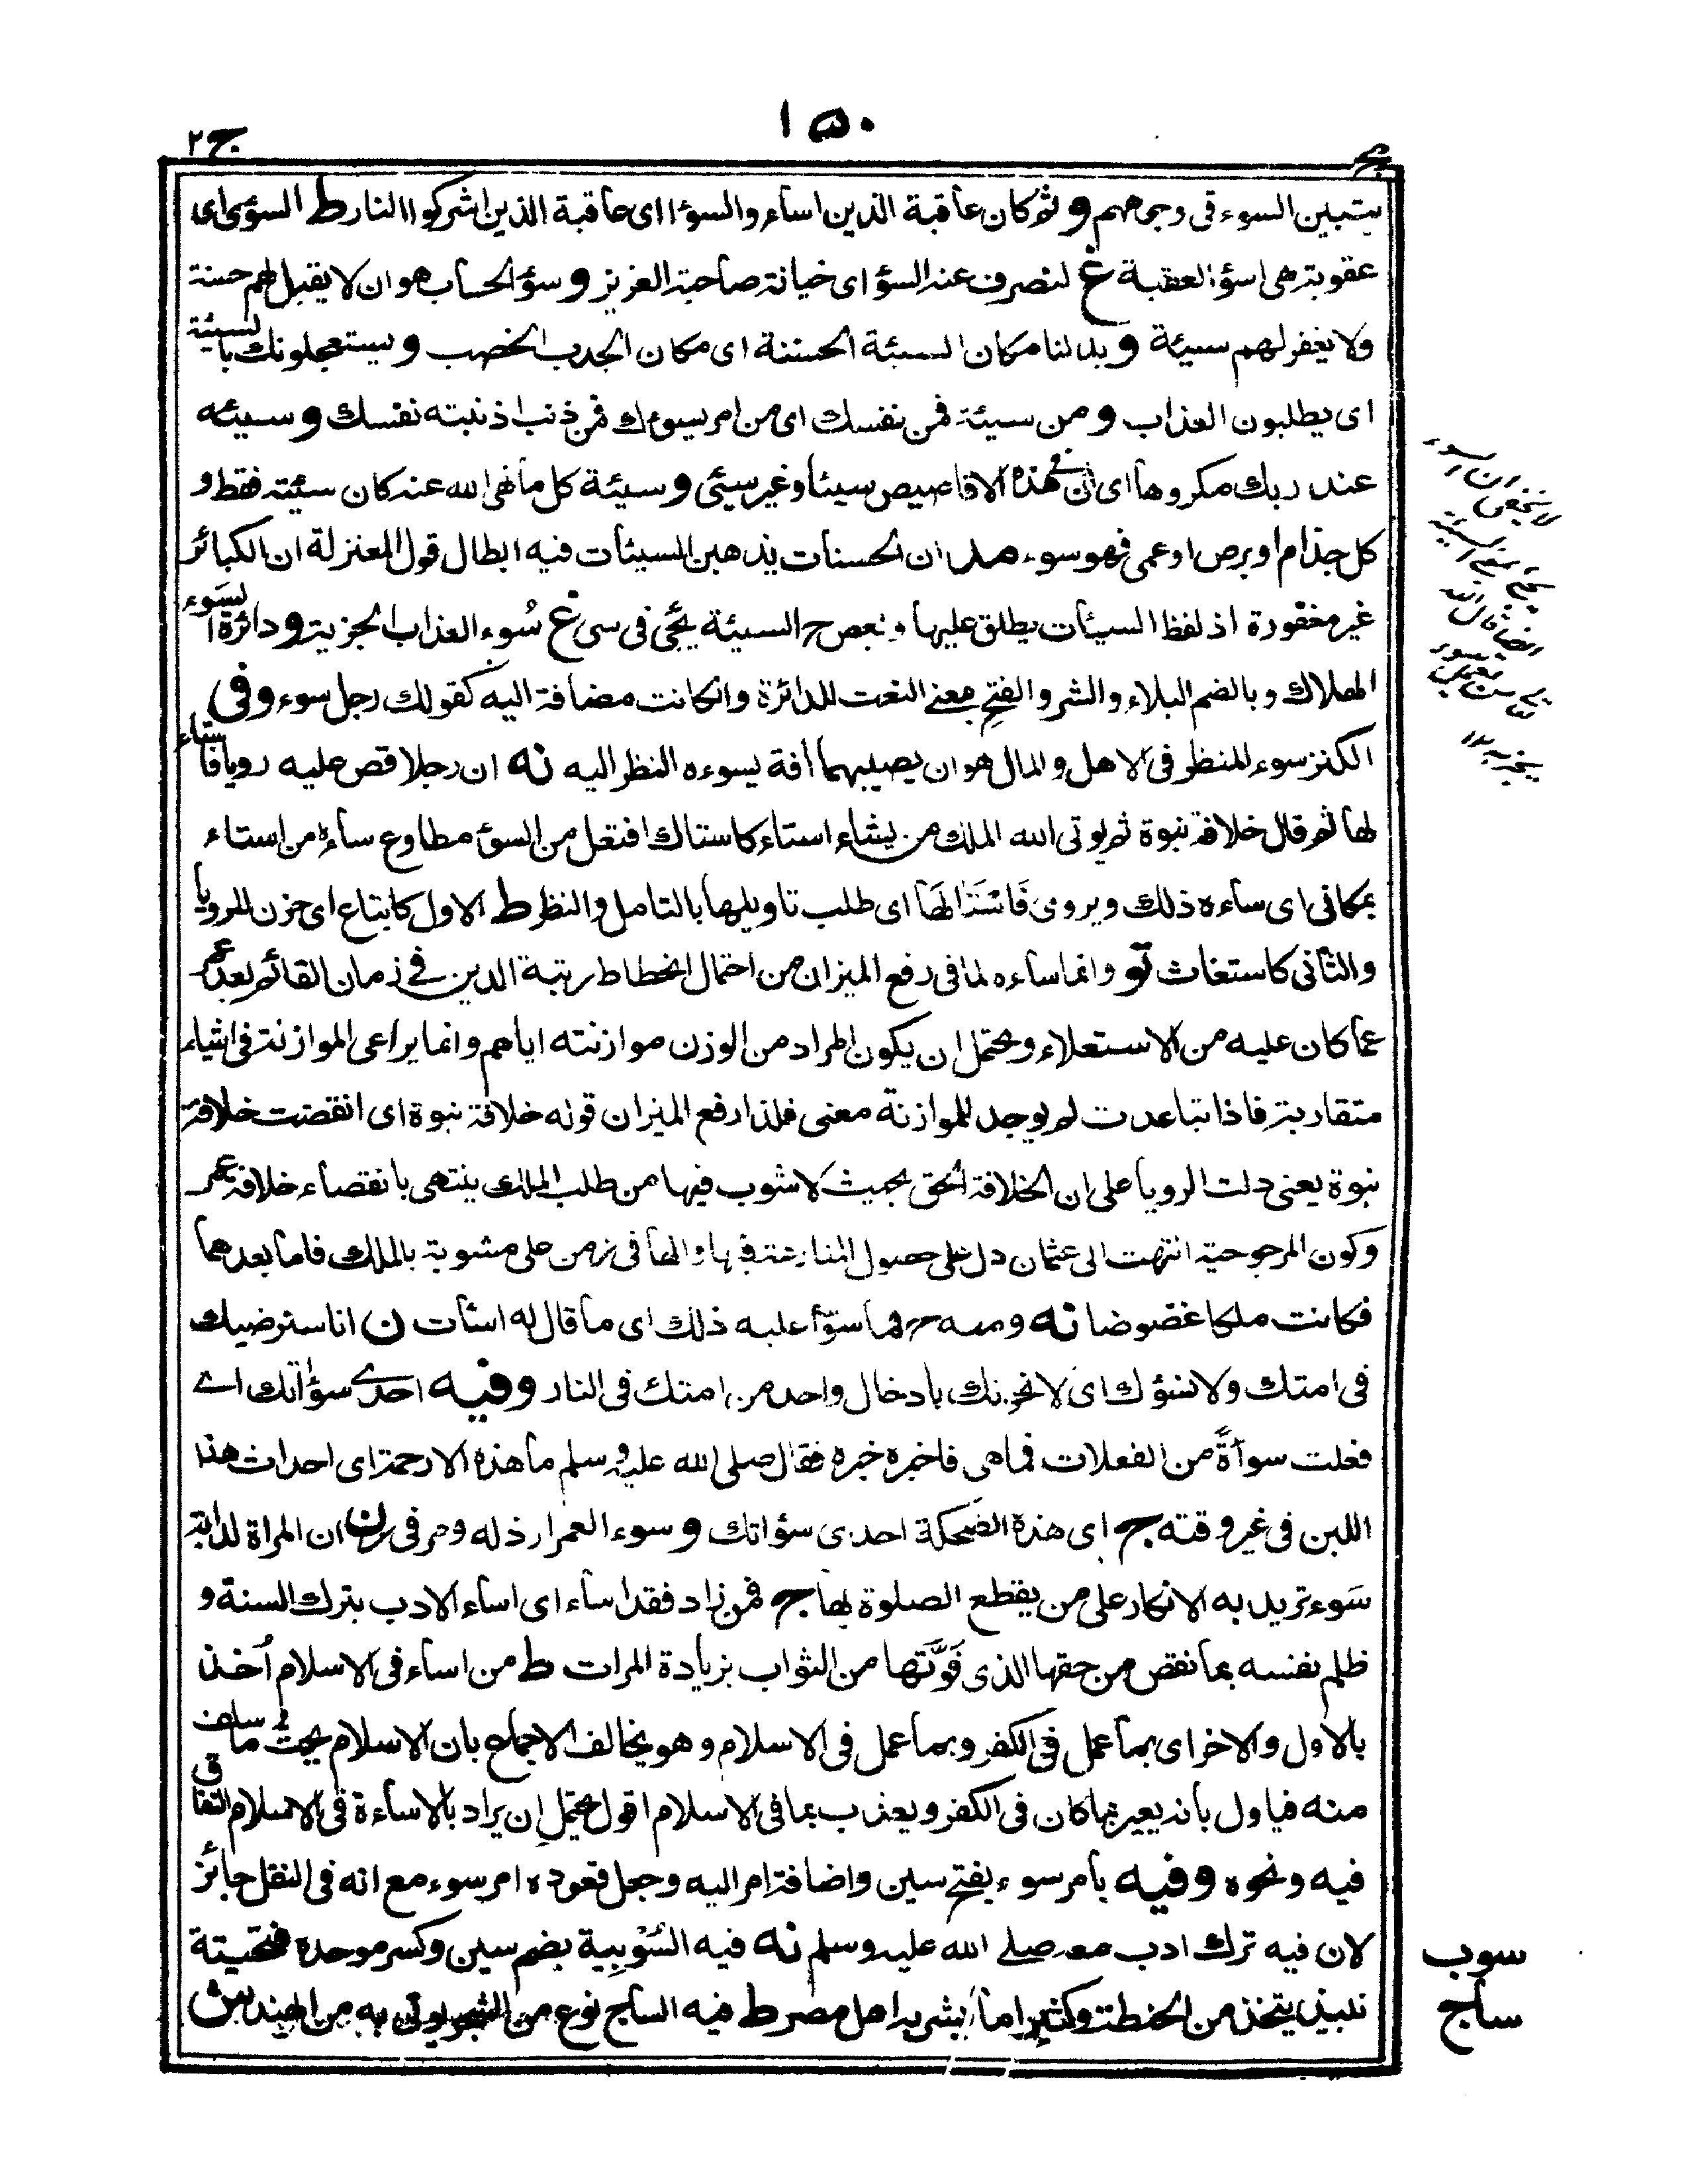 ١٥٠
ج٢
يتبين السوء فى وجوههم و ثم كان عاقبة الذين اساء والسوؤا اى عاقبة الذين اشركوا النار ط السؤى اى
عقوبة هى اسؤ العقبة غ لنصرف عنه السؤ اى خيانة صاحبة العزيز و سؤ الحساب هو ان لا يقبل لهم حسنة
ولا يغفر لهم سيئة و بدلنا مكان السيئة الحسنة اى مكان الجدب الخصب و يستعجلونك بالسيئة
اى يطلبون العذاب و من سيئة فمن نفسك اى من امر يسوءك فمن ذنب اذنبته نفسك و سيئه
عند ربك مكروها اى ان فى هذه الاقاصيص سيئا وغير سيئى و سيئة كل ما نهى الله عنه كان سيئته فقط و
كل جذام او برص او عمى فهو سوء مد ان الحسنات يذهبن السيئات فيه ابطال قول المعتزلة ان الكبائر
غير مغفورة اذ لفظ السيئات يطلق عليها و بعض ح السيئة يجى فى سى غ سُوء العذاب الجزية و دائرة السَوء
الهلاك و بالضم البلاء والشر والفتح بمعنے النعت للدائرة وانكانت مضافة اليه كقولك رجل سوء و فى
الكنز سوء المنظر فى الاهل والمال هو ان يصيبهما أفة يسوءه النظر اليه نه ان رجلا قص عليه رويا فاستاء
لها ثم قال خلافة نبوة ثم يوتى الله الملك من يشاء استاء كاستاك افتعل من السؤ مطاوع ساءه من استاء
بمكانى اى ساءه ذلك ويروى فَاسْتَالَهَا اى طلب تاويلها بالتامل والنظر ط الاول كابتاع اى حزن للرويا
والثانى كاستغاث تو وانما ساءه لما فى رفع الميزان من احتمال انحطاط رتبة الدين فے زمان القائم بعد عمر
عما كان عليه من الاستعلاء ويحتمل ان يكون المراد من الوزن موازنته اياهم وانما يراعى الموازنة فى اشياء
متقاربة فاذا تباعدت لم يوجد للموازنة معنى فلذا رفع الميزان قوله خلافة نبوة اى انقضت خلافة
نبوة يعنى دلت الرويا على ان الخلافة الحق بحيث لا شوب فيها من طلب الملك ينتهى بانقضاء خلافة عمر
وكون المرجوحية انتهت الى عثمان دل على حصول المنازعة فيها وانها فى زمن على مشوبة بالملك فاما بعدهما
فكانت ملكا عضوضا نه ومنه ح فما سوّأ عليه ذلك اى ما قال له اسأت ن انا سنرضيك
فى امتك ولا نسؤك اى لا نحزنك بادخال واحد من امتك فى النار و فيه احدى سؤاتك اے
فعلت سوأةً من الفعلات فما هى فاخبره خبره فقال صلى الله عليه وسلم ما هذه الا رحمة اى احداث هذا
اللبن فى غير وقته ج اى هذه الضحكة احدى سؤاتك و سوء العمر ارذله ومر فى رن ان المراة لدابة
سَوء تريد به الانكار على من يقطع الصلوة بها ج فمن زاد فقد اساء اى اساء الادب بترك السنة و
ظلم نفسه بما نقص من حقها الذى فَوَّتها من الثواب بزيادة المرات ط من اساء فى الاسلام اُخذ
بالاول والاخر اى بما عمل فى الكفر وبما عمل فى الاسلام وهو يخالف الاجماع بان الاسلام يجبّ ما سلف
منه فياول بانه يعير بما كان فى الكفر ويعذب بما فى الاسلام اقول يحتمل ان يراد بالاساءة فى الاسلام النفاق
فيه ونحوه و فيه بامر سوء بفتح سين واضافة امر اليه وجعل قعوده امر سوء مع انه فى النفل جائز
لان فيه ترك ادب معه صلے الله عليه وسلم نه فيه السُوْبِية بضم سين وكسر موحدة فتحيتة
نبيذ يتخذ من الحنطة وكثيرا ما يشربه اهل مصر ط فيه الساج نوع من الشجر يوتى به من الهند ش
سوب
ساج